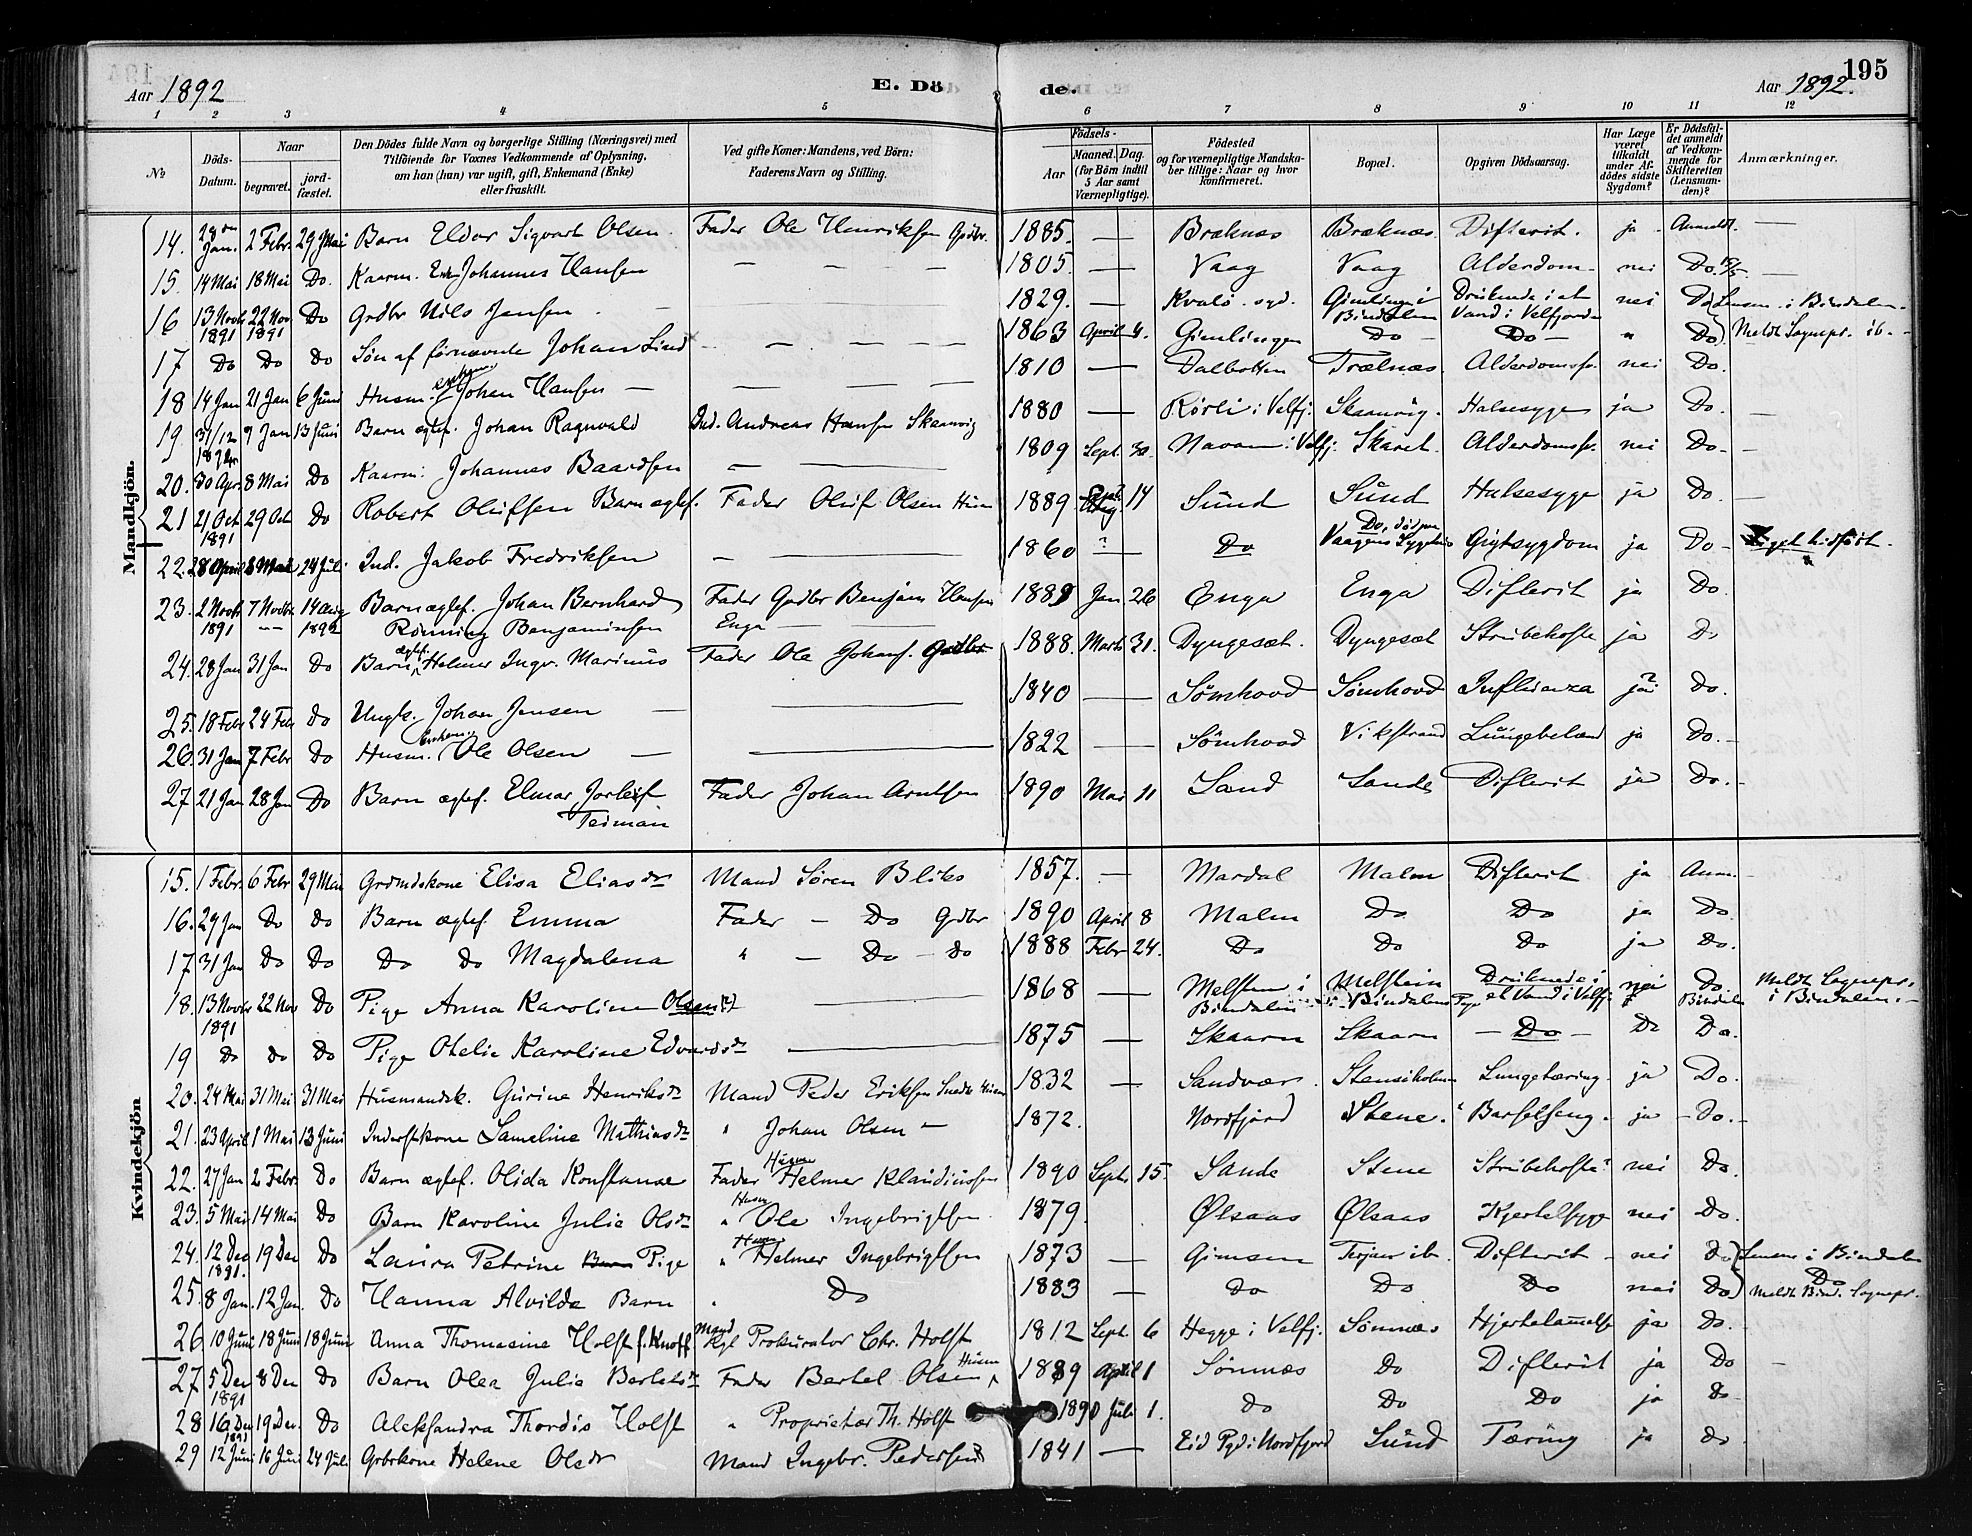 195
Aar 1892
E. Döde.
Aar 1892.
1 2 3 4 5 6 7 8 9 10 11 12
№
Döds-Datum.
Naar
begravet.
jordfæstet.
Den Dödes fulde Navn og borgerlige Stilling (Næringsvei) med
Tilföiende for Voxnes Vedkommende af Oplysning,
om han (hun) var ugift, gift, Enkemand (Enke)
eller fraskilt.
Ved gifte Koner: Mandens, ved Börn:
Faderens Navn og Stilling.
Födsels-
Aar
Maaned. Dag.
(for Börn indtil
5 Aar samt
Værnepligtige).
Födested
og for værnepligtige Mandska-
ber tillige: Naar og hvor
konfirmeret.
Bopæl.
Opgiven Dödsaarsag.
Har Læge
været
tilkaldt
under Af-
dödes sidste
Sygdom?
Er Dödsfal-
det anmeldt
af Vedkom-
mende for
Skifteretten
(Lensman-
den)?
Anmærkninger.
Mandkjön.
14. 28 Jan. 2 Febr. 29 Mai Barn Eldor Sigvart Olsen. Fader Ole Henriksen Grdbr. 1885. — Bræknæs Bræknæs. Difterit. ja Anmeldt. —
15. 14 Mai 18 Mai Do. Kaarm. Johannes Hansen — 1805. — Vaag Vaag Alderdom. nei Do. —
16 13 Novbr 1891 22 Nov 1891 Do Grdbr Nils Jensen — 1829. — Kvalö. Gimlingen i Bindalen Druknede i et Vand i Velfjorden nei Do Lensm. i Bindalen.
17 Do Do Do Sön af förnævnte Johan Lind — 1863 April 4. Gimlingen Do Do " Do Meldt Sognepr. ib. —
18 14 Jan 21 Jan 6 Juni Husm. Johan Hansen — 1810 — Dalbotten Trælnæs. Alderdomssv. nei Do.
19 31/12 9 Jan 13 Juni Barn ægtef. Johan Ragnvald Ind. Andreas Hansen Skaanvig 1880 — Rörli i Velfj. Skaanvig. Halsesyge ja Do. —
20. 30 Apr. 8 Mai Do Kaarm: Johannes Baardsen — 1809 Sept. 30. Navam i Velfj. Skaret. Alderdomssv. nei Do. —
21 21 Oct 1891 29 Oct Do Robert Olufsen Barn ægtef. Fader Oluf Olsen Husm 1889 Sept 14 Sund Sund Halsesyge ja Do. —
22. 28 April 8 Mai 24 Juli Ind. Jakob Fredriksen — 1860 ? Do Do, död paa Vaagens Sygehus Gigtsygdom ja Do —
23. 2 Novbr 1891 7 Novbr 14 Aug 1892 Barn ægtef. Johan Bernhard Rönning Benjaminsen Fader Grdbr Benjam Hansen Enga — 1889 Jan 26 Enga Enga Difterit ja Do
24. 28 Jan 31 Jan Do Barn ægtef. Helmer Ingv. Marinus Fader Ole Johans. Grdbr 1888. Marts 31. Dyngesæt. Dyngesæt Strubehoste ja Do
25. 18 Febr 24 Feb Do Ungk. Johan Jensen — 1840 — Sömhovd Sömhovd Influenza ja? Do.
26. 31 Jan 7 Febr Do Husm. Ole Olsen — 1822 — Sömhovd Vikstrand Lungebetænd ja Do. —
27 21 Jan 28 Jan Do Barn ægtef. Elmar Jorleif Teiman Fader Johan Arntsen 1890 Mai 11 Sand Sande Difterit ja Do. —
Kvindekjön
15. 1 Febr. 6 Febr 29 Mai Grdmdskone Elisa Eliasdr Mand Sören Bliks 1857. — Mardal Malm Difterit ja Anm. —
16. 29 Jan Do Do Barn ægtef. Emma Fader — Do Grdbr 1890 April 8 Malm Do Do ja Do.
17 31 Jan Do Do Do Do Magdalena " — Do — Do 1888 Febr 24. Do Do Do ja Do.
18. 13 Novbr 1891 22 Nov Do Pige Anna Karoline Olsen (?) — 1868 — Melstein i Bindalen Melstein i Bindalens Druknede i et Vand i Velfj. nei Do Bindalen Meldt Sognepr. i Bindalen. —
19 Do Do Do Pige Otelie Karoline Edvardsdr — 1875 — Skaarn Skaarn — Do — Do Do.
20. 24 Mai 31 Mai 31 Mai Husmandsk. Gurine Henriksdr Mand Peder Eriksen 1832 — Sandvær. Stensiholmen Lungetæring. ja Do.
21. 23 April 1 Mai 13 Juni Inderstkone Lameline Mathiasdr " Johan Olsen — 1872. Nordfjord Stene. Barselseng. ja — Do. —
22. 27 Jan 2 Febr. Do Barn ægtef. Olida Konstanse Fader Husm Helmer Klaudiussen 1890 Sept. 15. Sande Stene Strubehoste nei Do.
23. 5 Mai 14 Mai Do Barn Karoline Julie Olsdr " Husm Ole Ingebrigtsen. 1879. Ölsaas Ölsaas Kjertelsyge nei Do.
24. 12 Dec 1891. 19 Dec Do Laura Petrine Barn Pige " Husm Helmer Ingebrigtsen 1873 — Gimsen Terjan ib. Difterit — nei Do Lensm i Bindalen
25. 8 Jan. 12 Jan. Do Hanna Alvilde Barn " Do 1883 — Do Do Do nei Do Do Meldt Bind. Sognepr.
26 10 Juni 18 Juni 18 Juni Anna Thomasine Holst f. Knoff Mand Kgl Prokurator Chr. Holst 1812 Sept. 6 Hegge i Velfj. Sömnæs Hjertelammelse ja Do.
27 5 Dec 1891 8 Dec Do Barn Olea Julie Bertelsdr Fader Bertel Olsen Husm 1889 April 1 Sömnæs Do Difterit ja Do —
28 16 Dec 1891 19 Dec. Do Aleksandra Thordis Holst " Proprietær Th. Holst 1890 Juli 1. Do Do Do ja Do
29 12 Juni 16 Juni 24 Juli Grbrkone Helene Olsdr Mand Ingebr. Pedersen 1841 — Eid Pgd i Nordfjord Sund Tæring ja Do